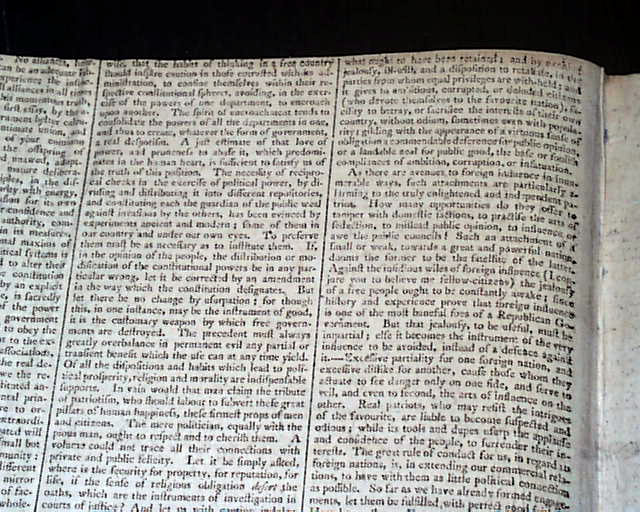 No alliances, how-
can be an adequate sub-
experience the infrac-
alliances in all times
this momentous truth,
first essay, by the
ment better calcu-
intimate union, and
of your common
the offspring of
unawed, adopt-
mature delibera-
ciples, in the dis-
rity with energy,
sion for its own
confidence and
authority, com-
in its measures,
mental maxims of
itical systems is
to alter their
constitution
by an explicit
is sacredly
of the power
government
to obey the
wife, that the habit of thinking in a free country
should inspire caution in those entrusted with its ad-
ministration, to confine themselves within their re-
spective constitutional spheres, avoiding, in the exer-
cise of the powers of one department, to encroach
upon another. The spirit of encroachment tends to
consolidate the powers of all the departments in one,
and thus to create, whatever the form of government,
a real despotism. A just estimate of that love of
power, and proneness to abuse it, which predomi-
nates in the human heart, is sufficient to satisfy us of
the truth of this position. The necessity of recipro-
cal checks in the exercise of political power, by di-
viding and distributing it into different repositories,
and constituting each the guardian of the public weal
against invasions by the others, has been evinced by
experiments ancient and modern; some of them in
our country and under our own eyes. To preserve
them must be as necessary as to institute them. If,
in the opinion of the people, the distribution or mo-
dification of the constitutional powers be in any par-
ticular wrong, let it be corrected by an amendment
in the way which the constitution designates. But
let there be no change by usurpation; for though
this, in one instance, may be the instrument of good,
it is the customary weapon by which free govern-
ments are destroyed. The precedent must always
greatly overbalance in permanent evil any partial or
transient benefit which the use can at any time yield.
Of all the dispositions and habits which lead to poli-
tical prosperity, religion and morality are indispensable
supports. In vain would that man claim the tribute
of patriotism, who should labour to subvert these great
pillars of human happiness, these firmest props of men
and citizens. The mere politician, equally with the
pious man, ought to respect and to cherish them. A
volume could not trace all their connections with
private and public felicity. Let it be simply asked,
where is the security for property, for reputation, for
life, if the sense of religious obligation desert the
oaths, which are the instruments of investigation in
courts of justice? And let us with caution indulge
what ought to have been retained; and by exciting
jealousy, ill-will, and a disposition to retaliate, in the
parties from whom equal privileges are with-held; and
it gives to ambitious, corrupted, or deluded citizens
(who devote themselves to the favourite nation) fa-
cility to betray, or sacrifice the interests of their own
country, without odium, sometimes even with popula-
rity; gilding with the appearance of a virtuous sense of
obligation a commendable deference for public opinion,
or a laudable zeal for public good, the base or foolish
compliances of ambition, corruption, or infatuation.
As there are avenues to foreign influence in innu-
merable ways, such attachments are particularly a-
larming to the truly enlightened and independent pa-
triot. How many opportunities do they offer to
tamper with domestic factions, to practise the arts of
seduction, to mislead public opinion, to influence or
awe the public councils! Such an attachment of a
small or weak, towards a great and powerful nation,
dooms the former to be the satellite of the latter.
Against the insidious wiles of foreign influence (I con-
jure you to believe me fellow-citizens) the jealousy
of a free people ought to be constantly awake; since
history and experience prove that foreign influence
is one of the most baneful foes of a Republican Go-
vernment. But that jealousy, to be useful, must be
impartial; else it becomes the instrument of the very
influence to be avoided, instead of a defence against
it.—Excessive partiality for one foreign nation, and
excessive dislike for another, cause those whom they
actuate to see danger only on one side, and serve to
veil, and even to second, the arts of influence on the
other. Real patriots, who may resist the intrigues
of the favourite, are liable to become suspected and
odious; while its tools and dupes usurp the applause
and confidence of the people, to surrender their in-
terests. The great rule of conduct for us, in regard to
foreign nations, is, in extending our commercial rela-
tions, to have with them as little political connection
as possible. So far as we have already formed engage-
ments, let them be fulfilled, with perfect good faith.